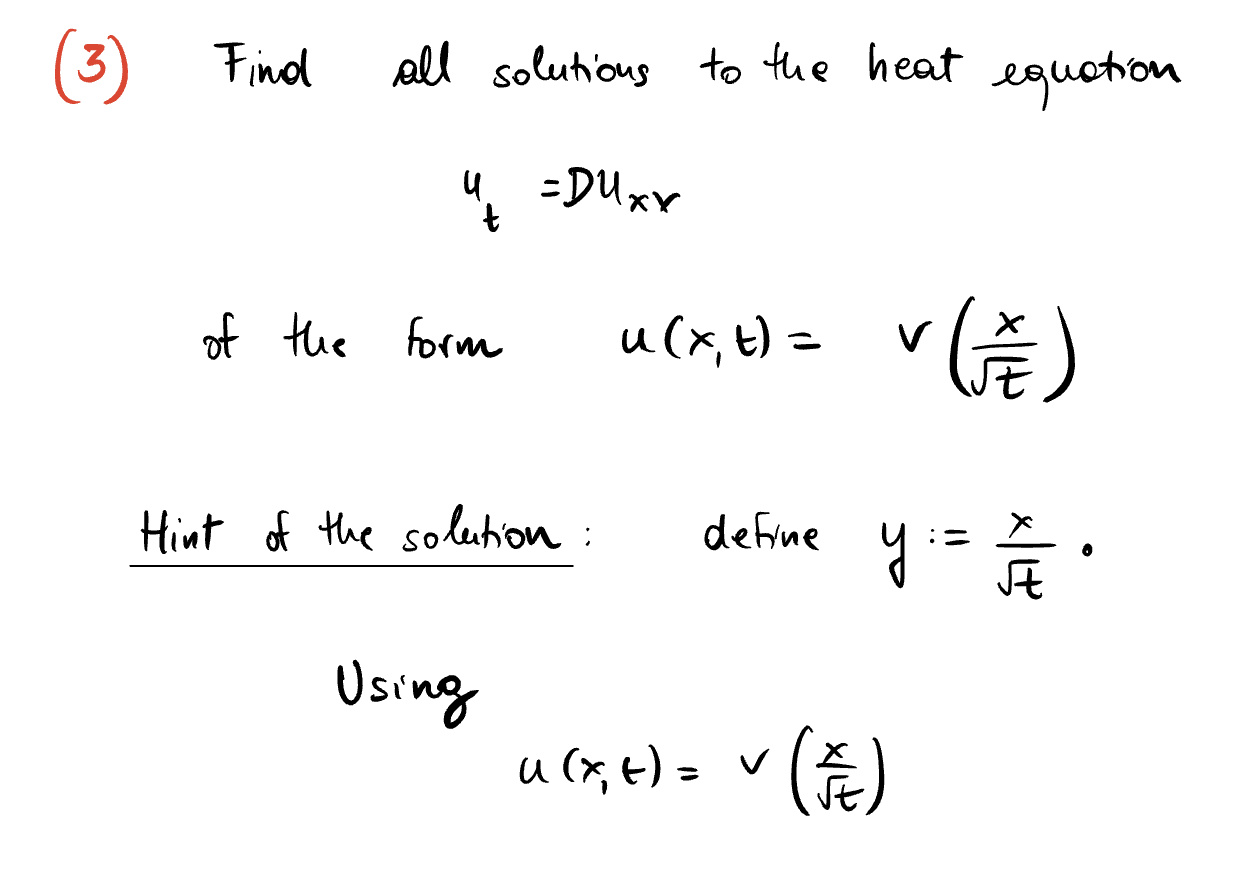 (3) Find all solutions to the heat equation
u_t = D u_xx
of the form u(x,t) = v(x/√t)
Hint of the solution : define y := x/√t .
Using
u(x,t) = v(x/√t)